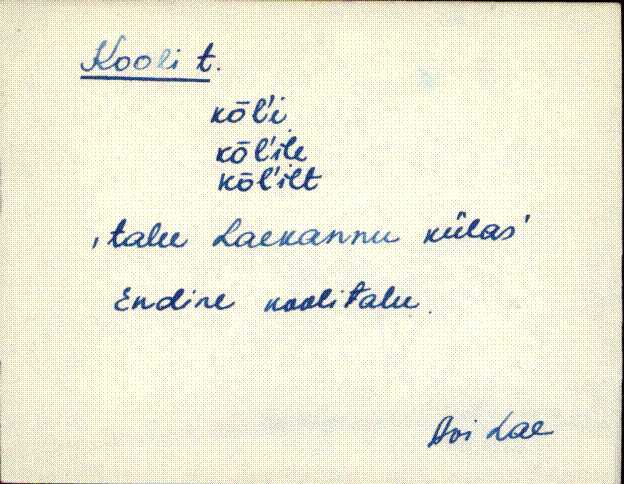 Kooli t.
kōl'i
kōl'ile
kōl'ilt
'talu Laekannu külas'
Endine koolitalu.
Lae